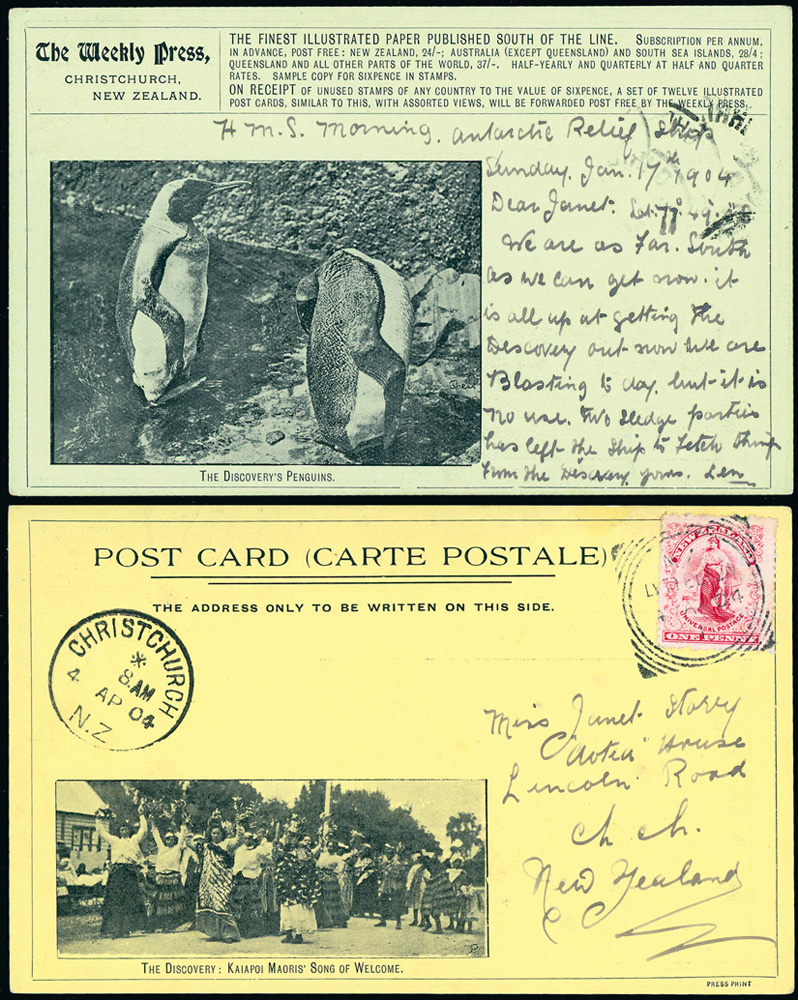 The Weekly Press,
CHRISTCHURCH,
NEW ZEALAND.
THE FINEST ILLUSTRATED PAPER PUBLISHED SOUTH OF THE LINE. SUBSCRIPTION PER ANNUM,
IN ADVANCE, POST FREE: NEW ZEALAND, 24/-; AUSTRALIA (EXCEPT QUEENSLAND) AND SOUTH SEA ISLANDS, 28/4;
QUEENSLAND AND ALL OTHER PARTS OF THE WORLD, 37/-. HALF-YEARLY AND QUARTERLY AT HALF AND QUARTER
RATES. SAMPLE COPY FOR SIXPENCE IN STAMPS.
ON RECEIPT OF UNUSED STAMPS OF ANY COUNTRY TO THE VALUE OF SIXPENCE, A SET OF TWELVE ILLUSTRATED
POST CARDS, SIMILAR TO THIS, WITH ASSORTED VIEWS, WILL BE FORWARDED POST FREE BY THE WEEKLY PRESS.
H M.S. Morning. Antarctic Relief Ship
Sunday. Jan. 17th 1904
Dear Janet. Lat. 77° 49
We are as Far. South
as we can get now. it
is all up at getting the
Discovery out now We are
Blasting to day. but it is
no use. Two sledge parties
has left the Ship to Fetch things
From the Discovery yours. Len
THE DISCOVERY'S PENGUINS.
POST CARD (CARTE POSTALE)
THE ADDRESS ONLY TO BE WRITTEN ON THIS SIDE.
NEW ZEALAND
UNIVERSAL POSTAGE
ONE PENNY
LY
04
CHRISTCHURCH
8.AM
4 AP 04
N.Z
Miss Janet Storry
"Aotea" House
Lincoln Road
Ch Ch.
New Zealand
THE DISCOVERY: KAIAPOI MAORIS' SONG OF WELCOME.
PRESS PRINT